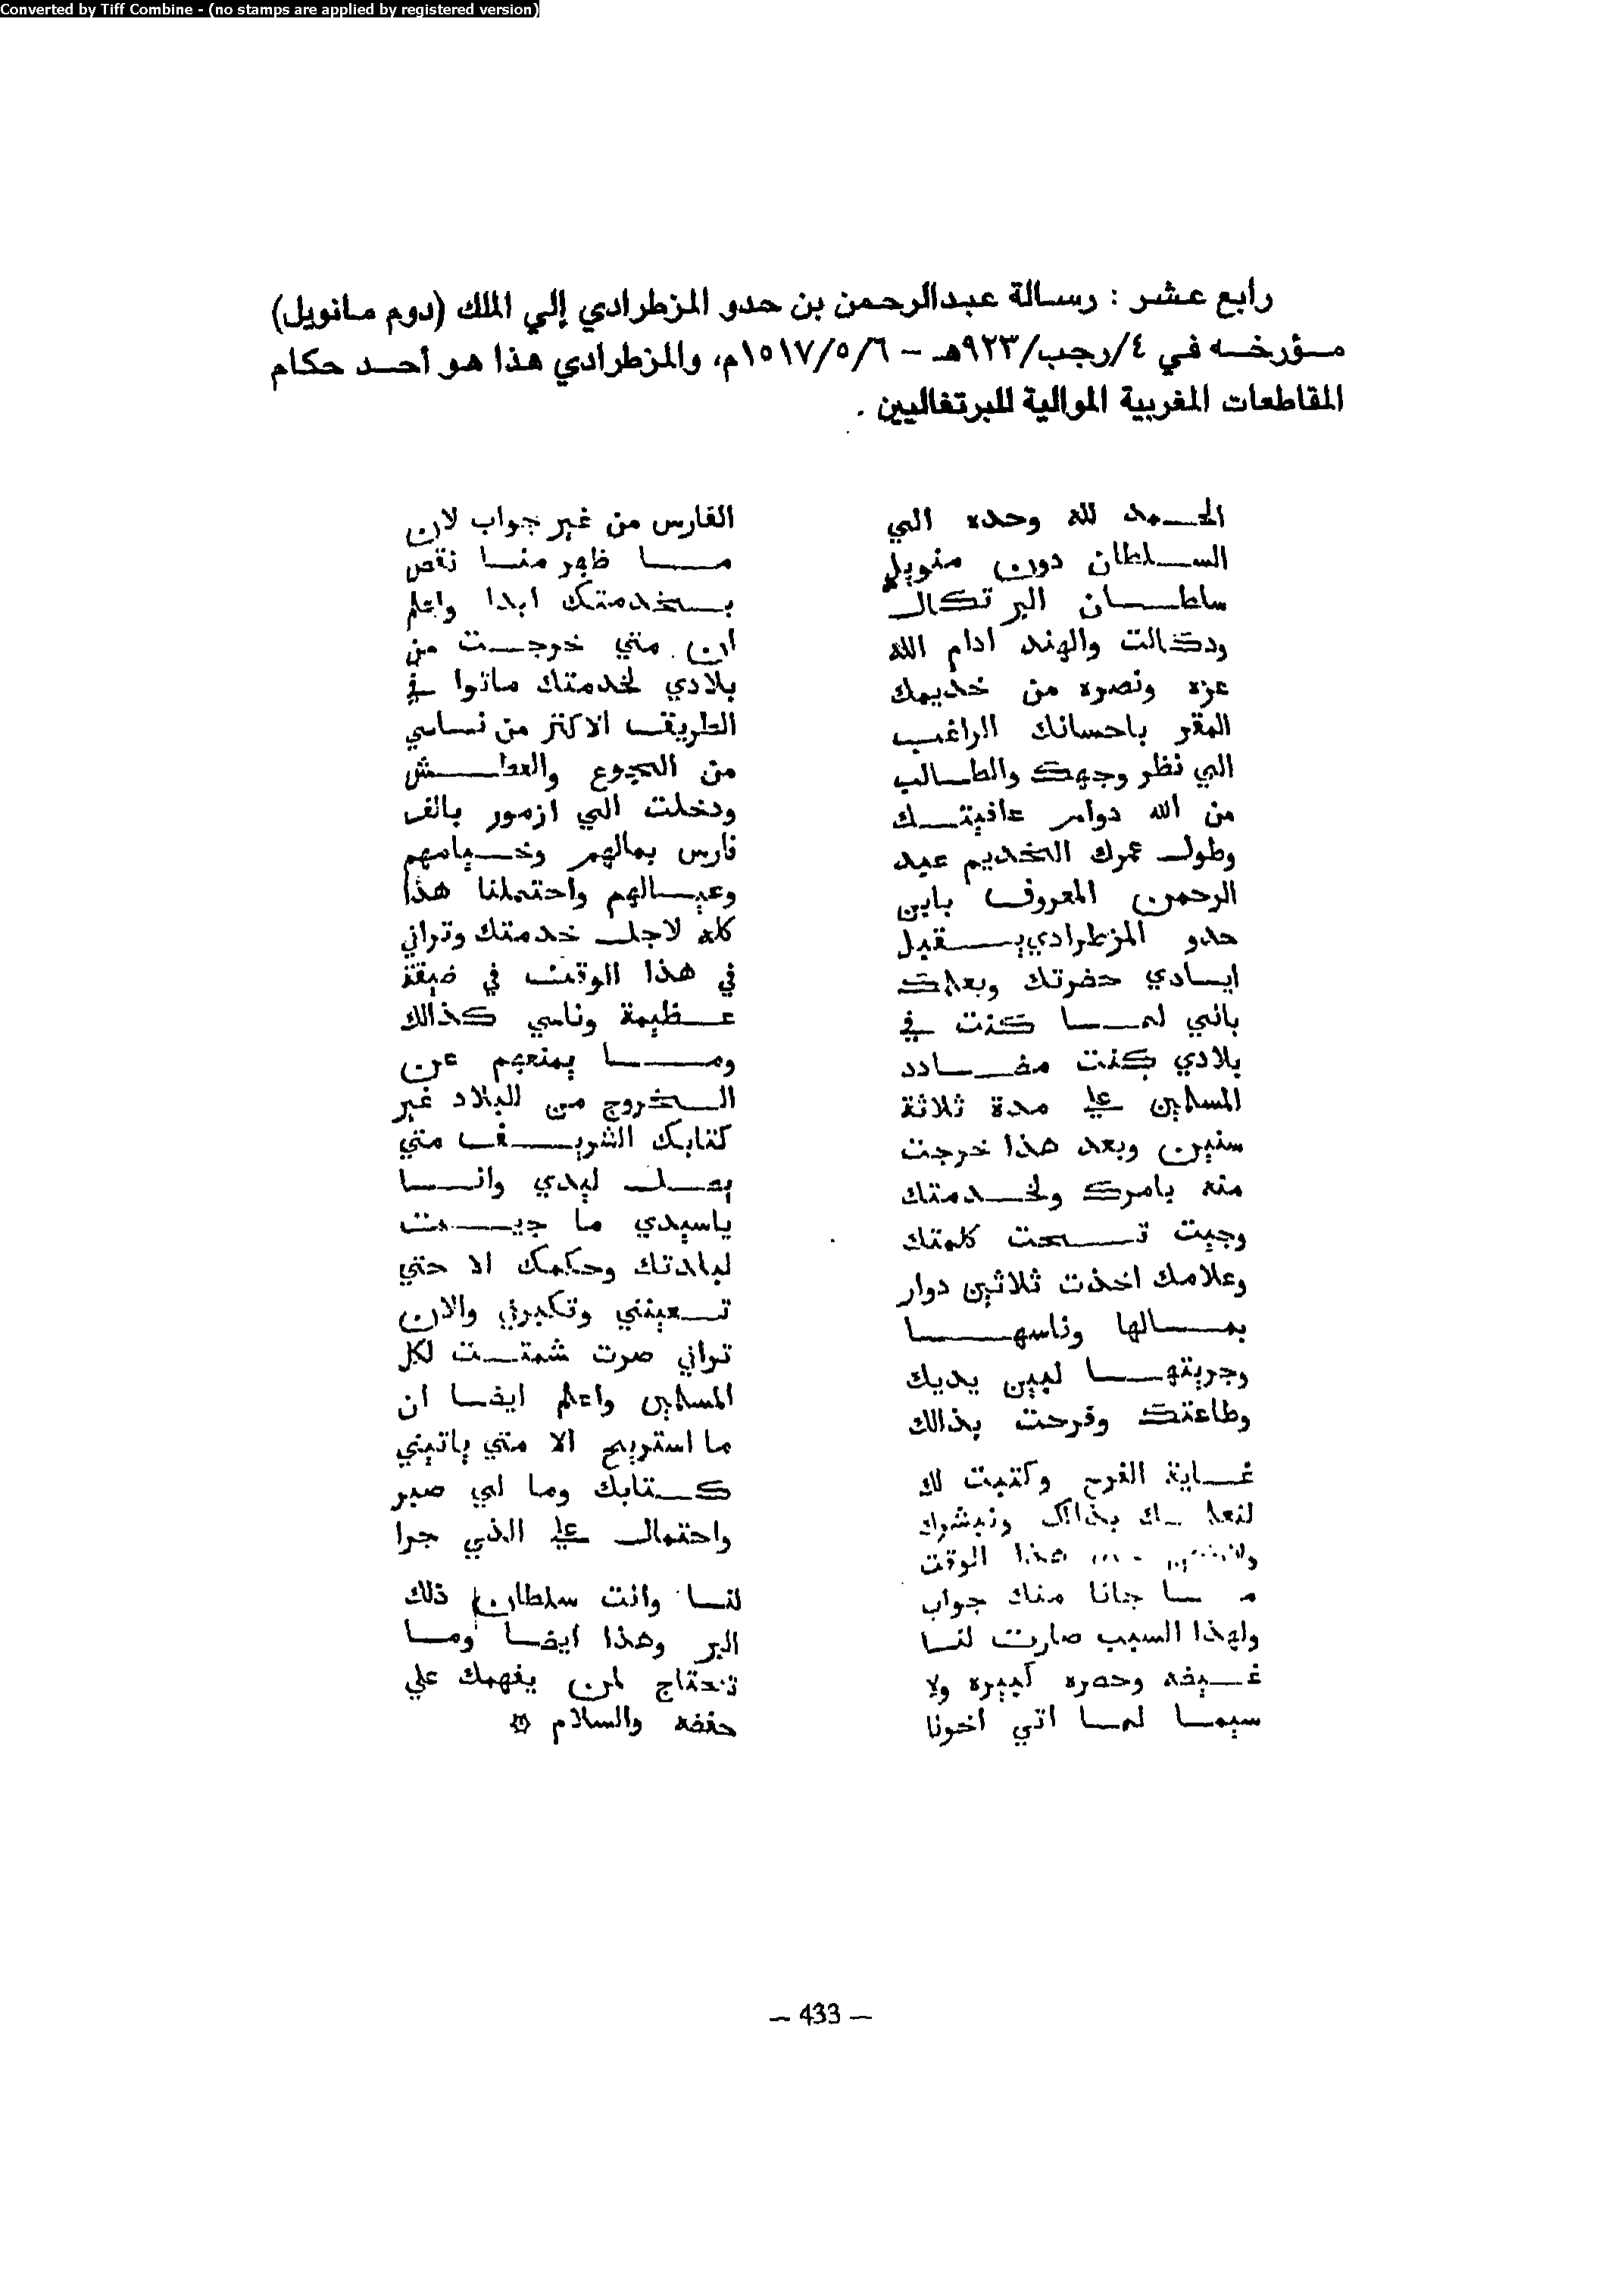 Converted by Tiff Combine - (no stamps are applied by registered version)
رابع عشر : رسالة عبدالرحمن بن حدو المزطرادي إلي الملك (دوم مانويل)
مؤرخه في ٤/رجب/٩٢٣هـ – ١٥١٧/٥/٦م، والمزطرادي هذا هو أحد حكام
المقاطعات المغربية الموالية للبرتغاليين .
الحمد لله وحده الي
السلطان دون منويل
سلطان البرتكال
ودكالت والهند ادام الله
عزه ونصره من خديمك
المقر باحسانك الراغب
الي نظر وجهك والطالب
من الله دوام عافيتك
وطول عمرك الخديم عبد
الرحمن المعروف بابن
حدو المزطرادي يقبل
ايادي حضرتك وبعلمك
باني لما كنت في
بلادي كنت مضادد
المسلمين علي مدة ثلاثة
سنين وبعد هذا خرجت
منه بامرك ولخدمتك
وجيت تحت كلمتك
وعلامك اخذت ثلاثين دوار
بمالها وناسها
وجريتها لبين يديك
وطاعتك وفرحت بذالك
غاية الفرح وكتبت لك
لنعلمك بذالك ونبشرك
هذا الوقت
ما جانا منك جواب
ولهذا السبب صارت لنا
غيضه وحصره كبيره ولا
سيما لما اتي اخونا
الفارس من غير جواب لان
ما ظهر منا نقص
بخدمتك ابدا واعلم
ان متي خرجت من
بلادي لخدمتك ماتوا في
الطريق الاكثر من نساسي
من الجوع والعطش
ودخلت الي ازمور بالف
فارس بمالهم وخيامهم
وعيالهم واحتملنا هذا
كله لاجل خدمتك وتراني
في هذا الوقت في ضيقة
عظيمة وناسي كذالك
وما يمنعهم عن
الخروج من البلاد غير
كتابك الشريف متي
يصل ليدي وانا
ياسيدي ما جيت
لبلادتك وحكمك الا حتي
تعينني وتكبرني والان
تراني صرت شمتت لكل
المسلمين واعلم ايضا ان
ما استريح الا متي ياتيني
كتابك وما لي صبر
واحتمال علي الذي جرا
لنا وانت سلطان ذلك
البر وهذا ايضا وما
تحتاج لمن يفهمك علي
حققه والسلام
— 433 —